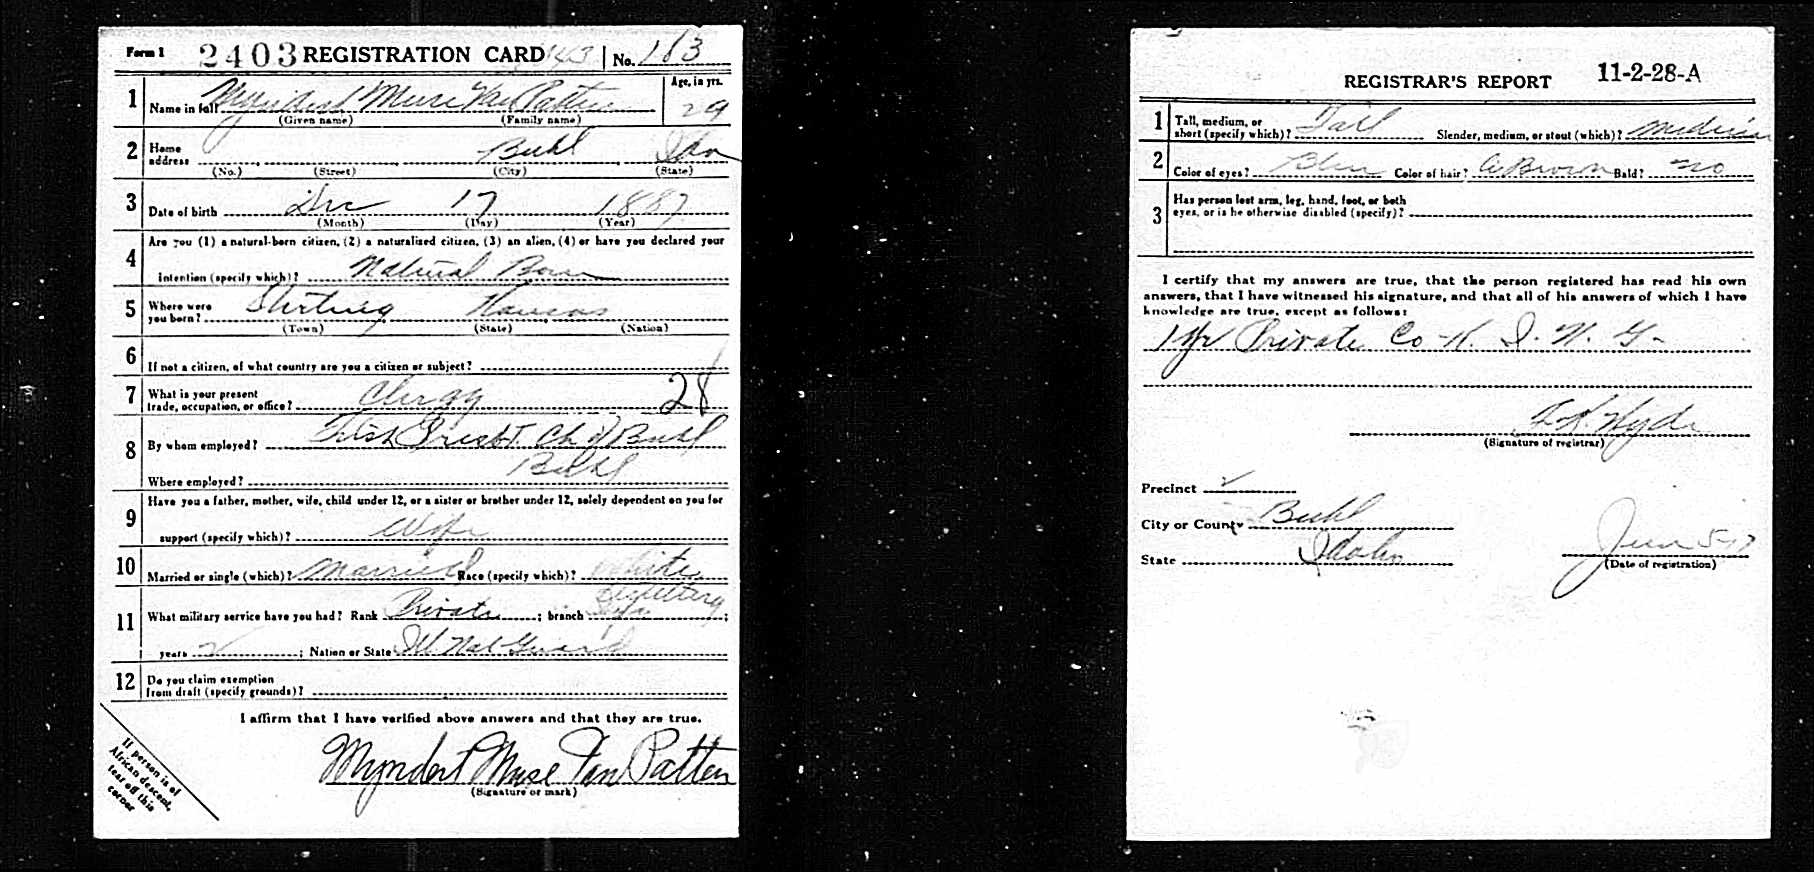 Form 1 2403 REGISTRATION CARD No. 183
1 Name in full Myndert Muse Van Patten Age, in yrs. 29
(Given name) (Family name)
2 Home address Buhl Ida
(No.) (Street) (City) (State)
3 Date of birth Dec 17 1887
(Month) (Day) (Year)
4 Are you (1) a natural-born citizen, (2) a naturalized citizen, (3) an alien, (4) or have you declared your
intention (specify which)? Natural Born
5 Where were you born? Kansas
(Town) (State) (Nation)
6 If not a citizen, of what country are you a citizen or subject?
7 What is your present trade, occupation, or office? Clergy 28
8 By whom employed? First Presbt. Ch of Buhl
Where employed? Buhl
9 Have you a father, mother, wife, child under 12, or a sister or brother under 12, solely dependent on you for
support (specify which)? Wife
10 Married or single (which)? Married Race (specify which)? White
11 What military service have you had? Rank Private ; branch ;
years 2 ; Nation or State Ill Nat Guard
12 Do you claim exemption
from draft (specify grounds)?
I affirm that I have verified above answers and that they are true.
Myndert Muse Van Patten
(Signature or mark)
If person is of
African descent,
tear off this
corner
REGISTRAR'S REPORT 11-2-28-A
1 Tall, medium, or short (specify which)? Tall Slender, medium, or stout (which)? Medium
2 Color of eyes? Blue Color of hair? Brown Bald? no
3 Has person lost arm, leg, hand, foot, or both
eyes, or is he otherwise disabled (specify)?
I certify that my answers are true, that the person registered has read his own
answers, that I have witnessed his signature, and that all of his answers of which I have
knowledge are true, except as follows:
1 yr Private Co K. I. N. G.
Hyde
(Signature of registrar)
Precinct 2
City or County Buhl
State Idaho June 5-17
(Date of registration)